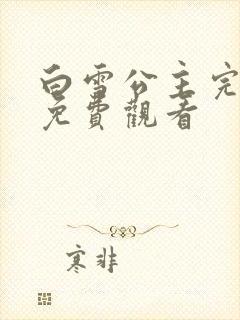 白雪公主完
免費觀看
寒非